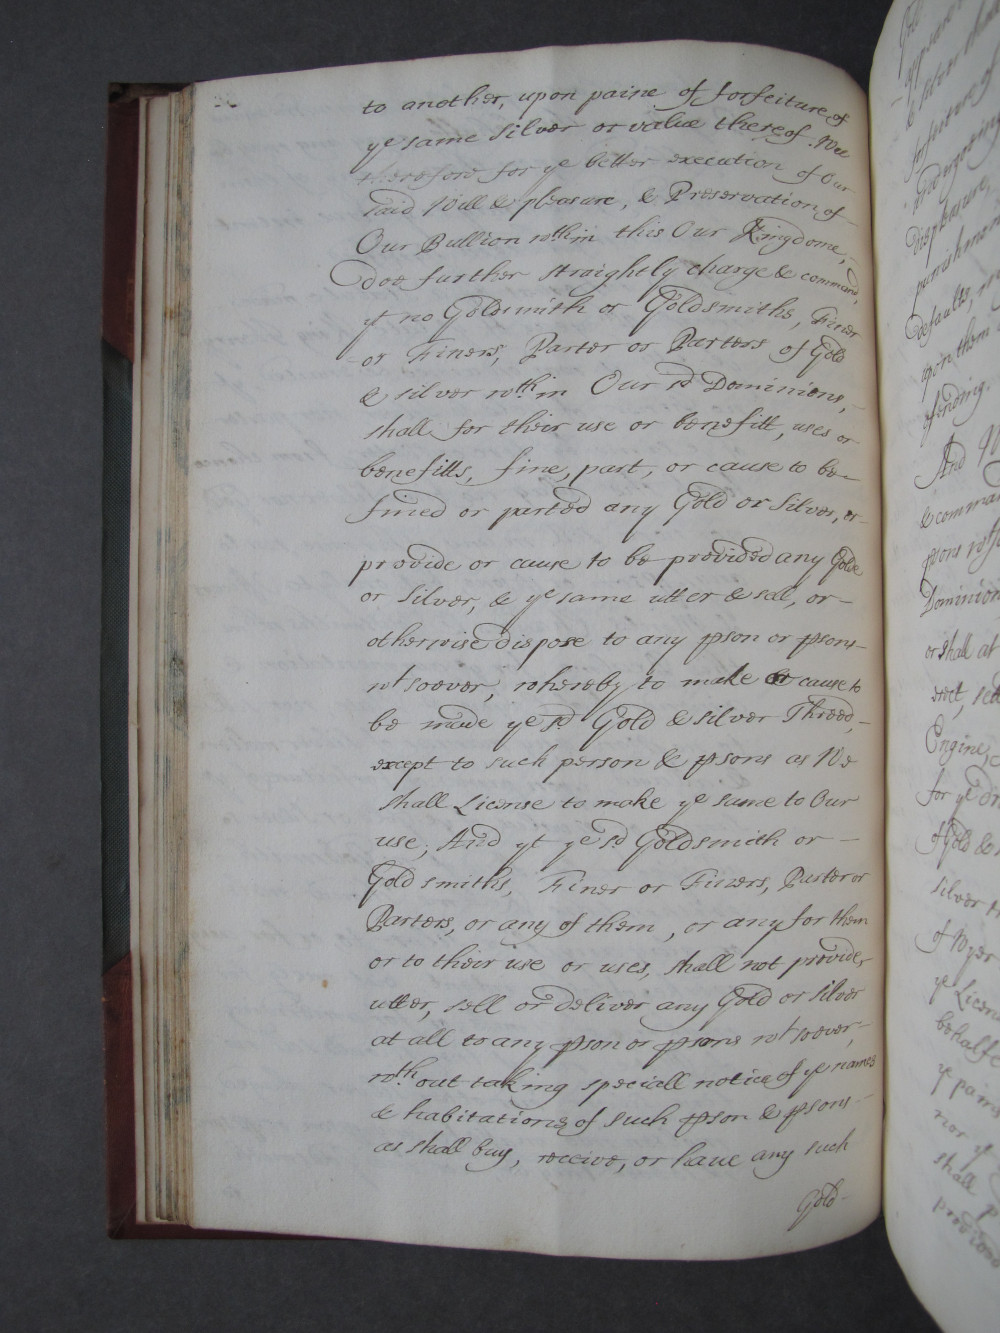 to another, upon paine of forfeiture of
ye same Silver or value thereof. Wee
therefore for ye better execution of Our
said Will & pleasure, & Preservation of
Our Bullion wthin this Our Kingdome,
doe further straightly charge & command,
yt no Goldsmith or Goldsmiths, Finer
or Finers, Parter or Parters of Gold
& silver wthin Our sd Dominions,
shall for their use or benefitt, uses or
benefitts, fine, part, or cause to be
fined or parted any Gold or Silver, or
provide or cause to be provided any Golde
or Silver, & ye same utter & sell, or
otherwise dispose to any pson or psons
wt soever, whereby to make or cause to
be made ye sd Gold & silver Threed,
except to such person & psons as We
shall License to make ye same to Our
use, And yt ye sd Goldsmith or
Goldsmiths, Finer or Finers, Parter or
Parters, or any of them, or any for them
or to their use or uses, shall not provide,
utter, sell or deliver any Gold or silver
at all to any pson or psons wt soever,
wthout taking speciall notice of ye names
& habitations of such pson & psons
as shall buy, receive, or have any such
Gold
forfeiture of
displeasure,
punishment
defaults,
upon them
fending.
And
& comma
psons
Dominion
or shall at
erect,
Engine,
for ye
of Gold &
silver
of Wyer
ye Licen
behalfe
ye pain
nor
shall p